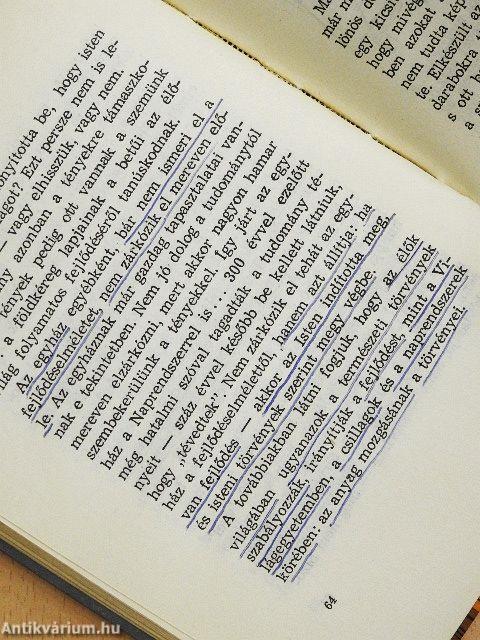 onyította be, hogy isten
ágot? Ezt persze nem is le-
— vagy elhisszük, vagy nem.
ny azonban a tényekre támaszko-
ények pedig ott vannak a szemünk
: a földkéreg lapjainak a betűi az élő-
ilág folyamatos fejlődéséről tanúskodnak.
Az egyház egyébként, bár nem ismeri el a
fejlődéselméletet, nem zárkózik el mereven elő-
le. Az egyháznak már gazdag tapasztalatai van-
nak e tekintetben. Nem jó dolog a tudománytól
mereven elzárkózni, mert akkor nagyon hamar
szembekerülünk a tényekkel. Így járt az egy-
ház a Naprendszerrel is ... 300 évvel ezelőtt
még hatalmi szóval tagadták a tudomány té-
nyeit — száz évvel később be kellett látniuk,
hogy „tévedtek". Nem zárkózik el tehát az egy-
ház a fejlődéselmélettől, hanem azt állítja: ha
van fejlődés — akkor az Isten indította meg,
és isteni törvények szerint megy végbe.
A továbbiakban látni fogjuk, hogy az élők
világában ugyanazok a természeti törvények
szabályozzák, irányítják a fejlődést, mint a Vi-
lágegyetemben, a csillagok és a naprendszerek
körében: az anyag mozgásának a törvényei.
64
már m
lönös d
egy kicsi
hogy mivég
ben azokat
nem tudta kép
te. Elkészült a
darabokra t
s ott h
a s
Antikvárium.hu